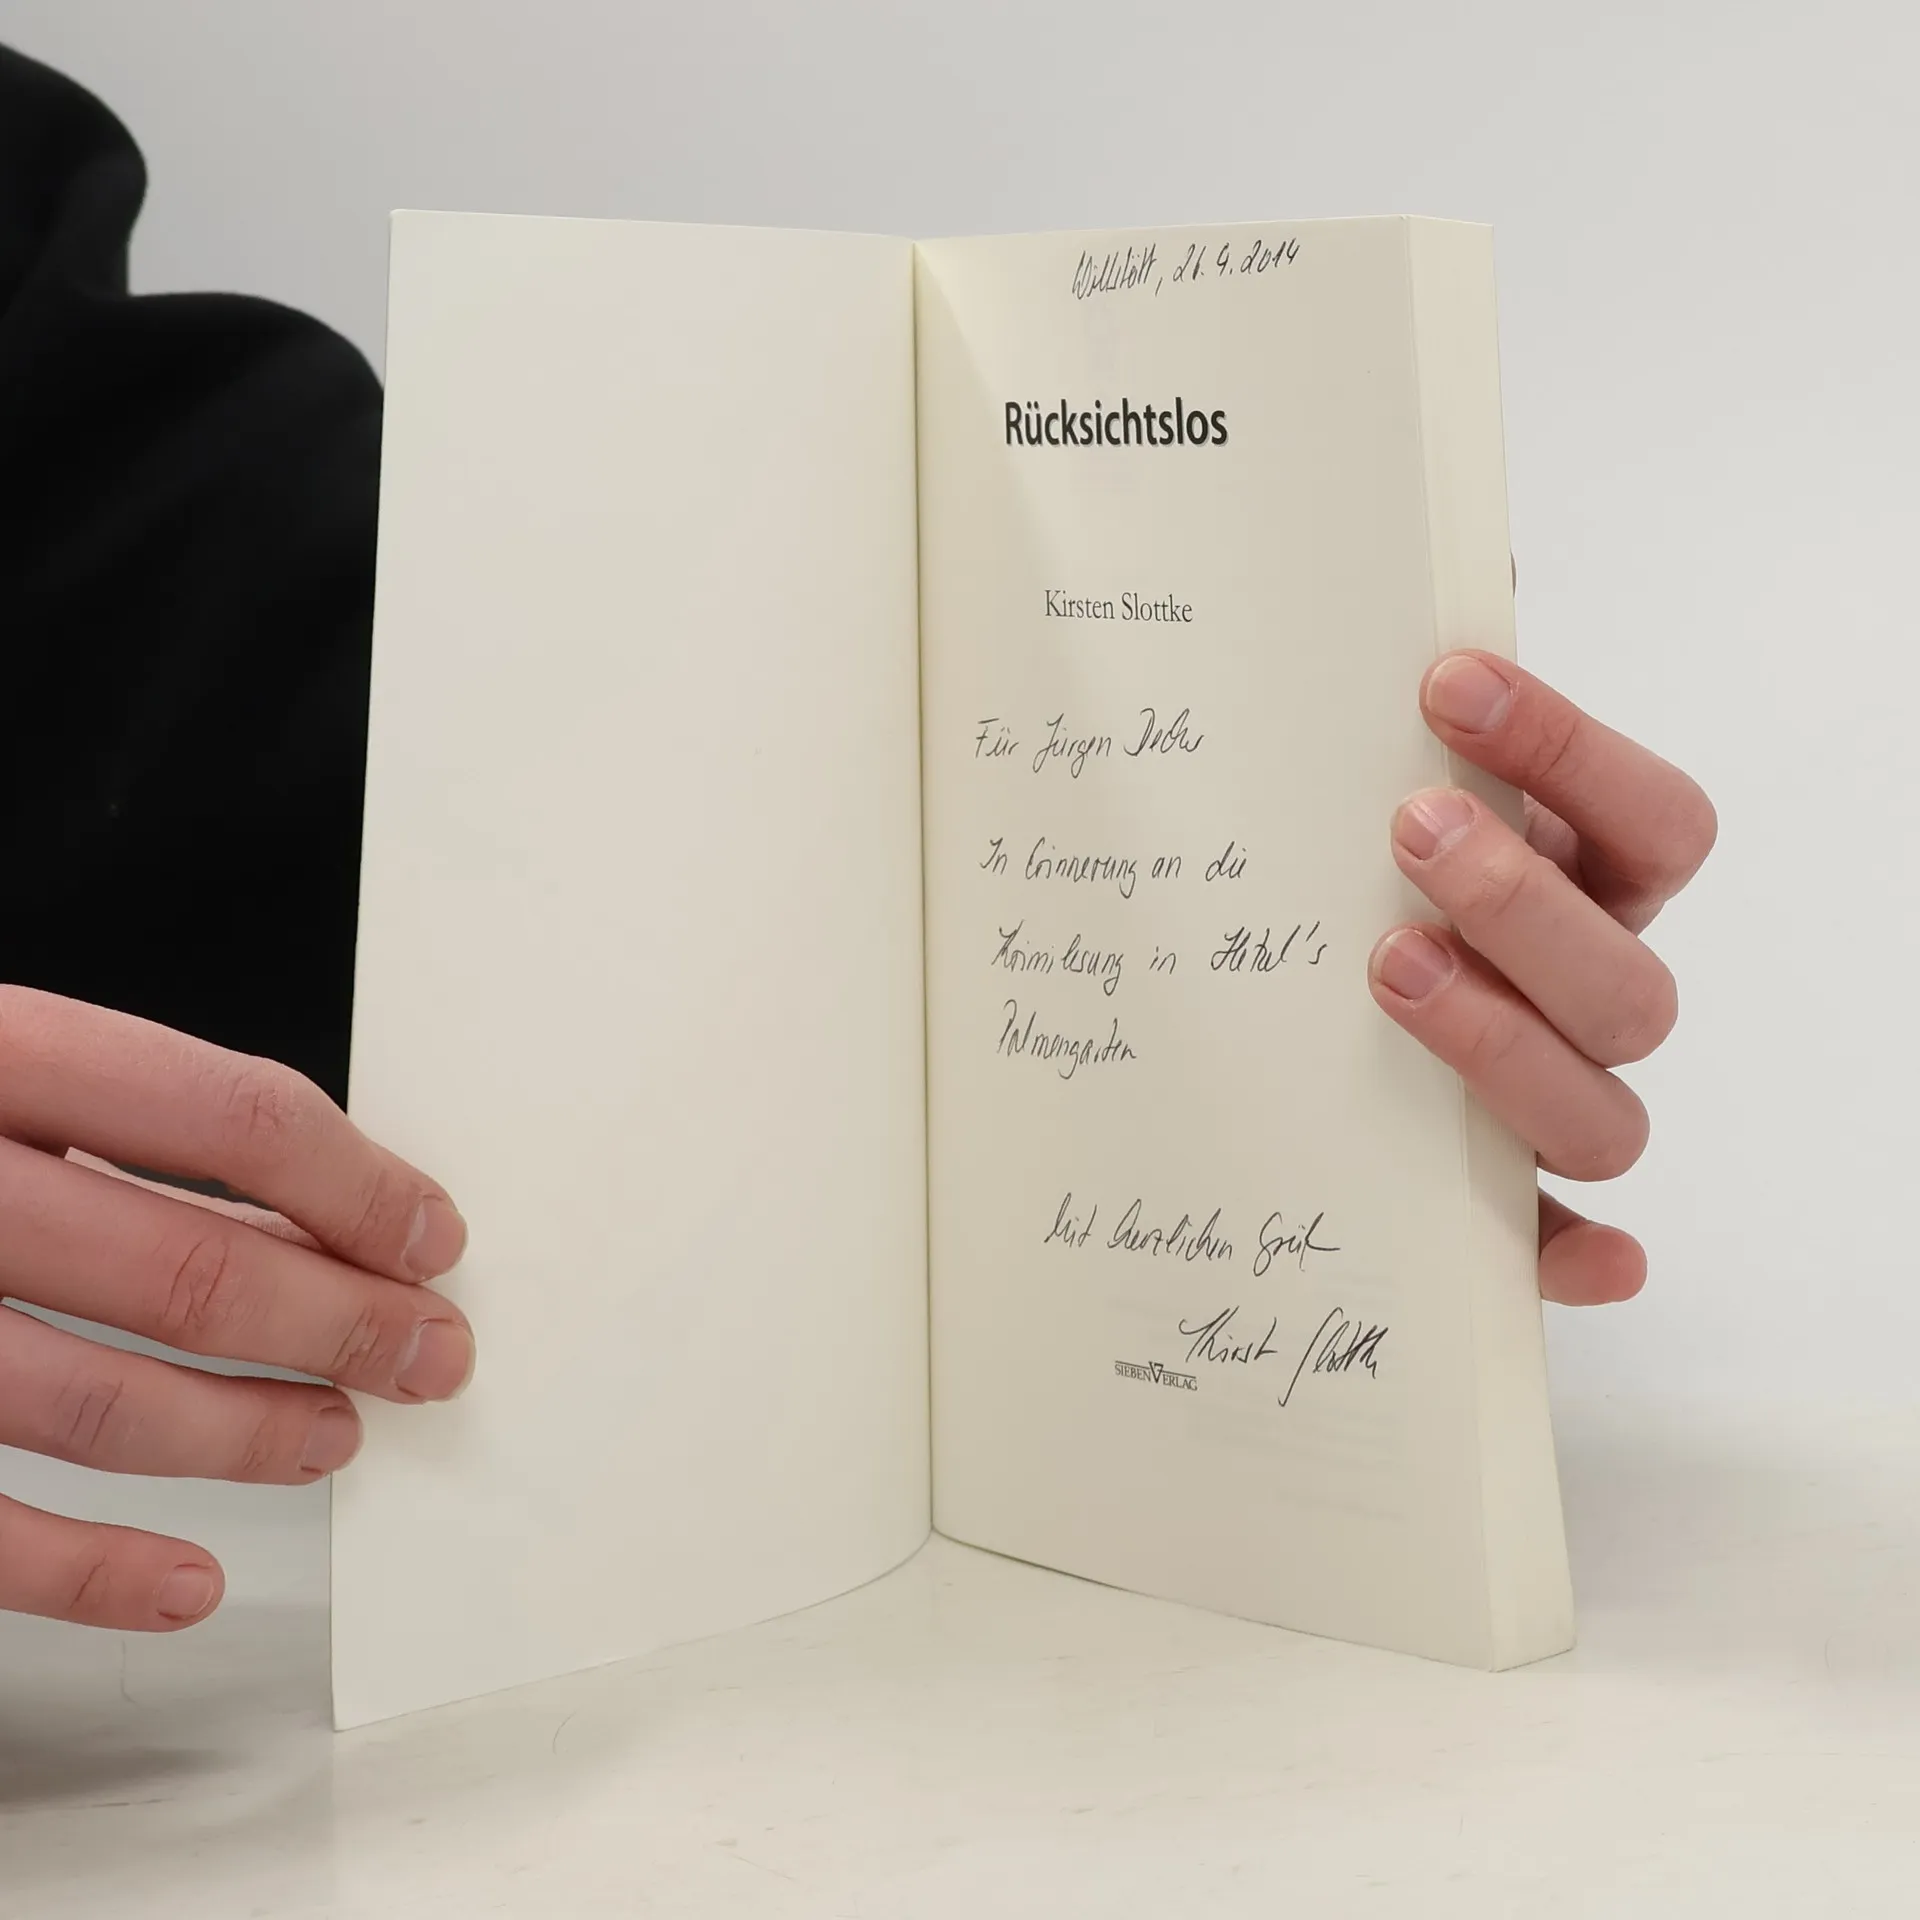 Willstätt, 26.9.2014
Rücksichtslos
Kirsten Slottke
Für Jürgen
In Erinnerung an die
Krimilesung in Hetzel's
Palmengarten
Mit herzlichem Gruß
Kirsten Slottke
SIEBEN VERLAG